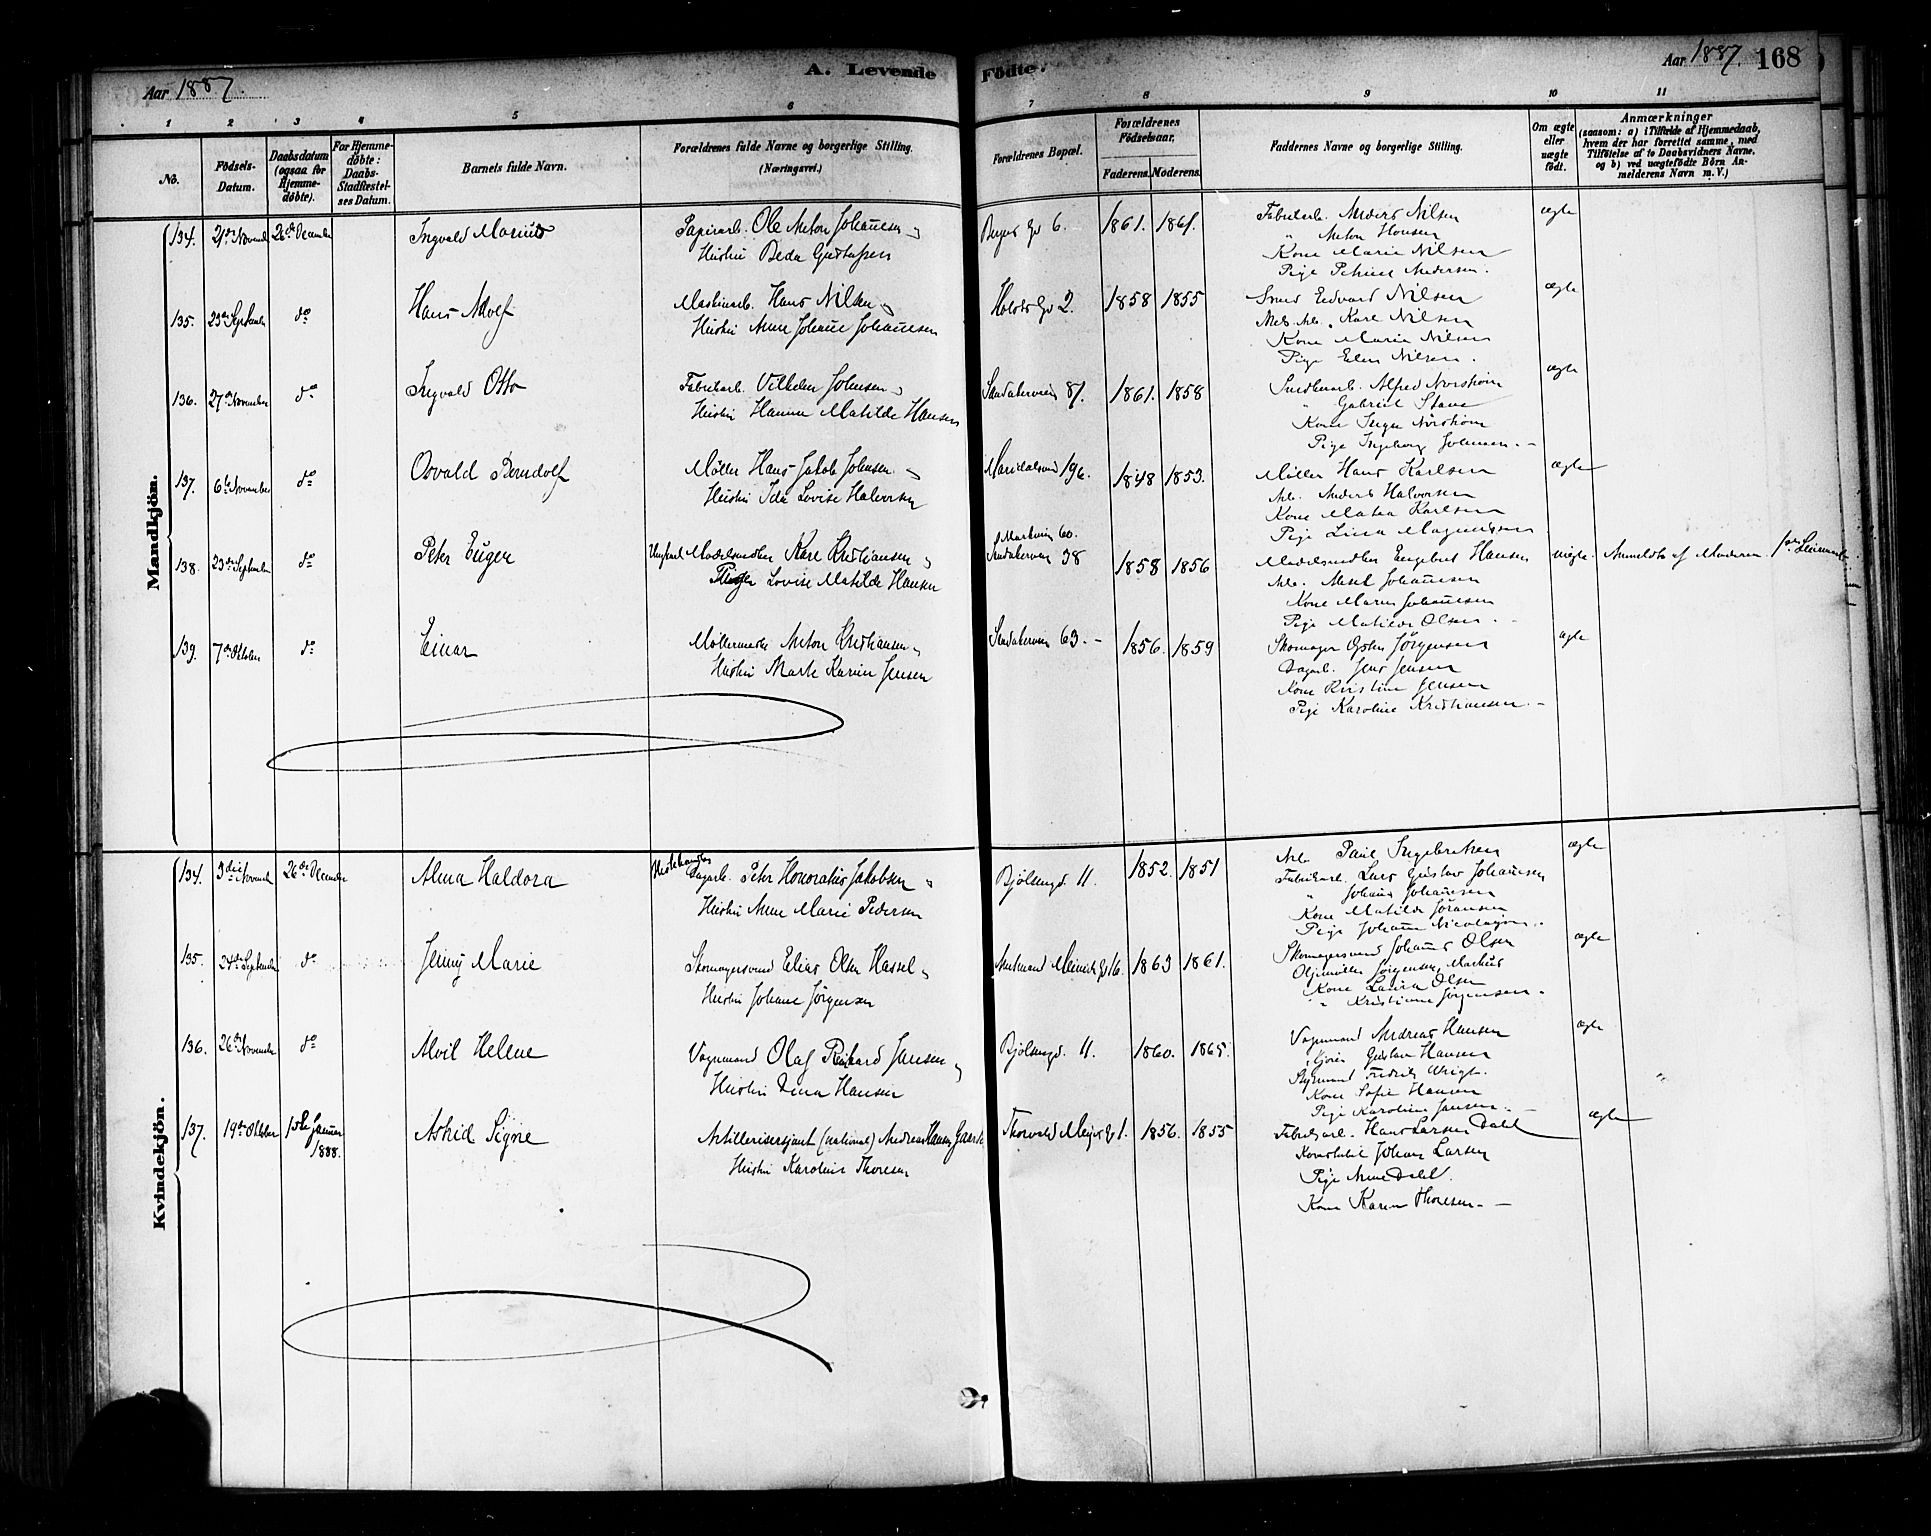 Aar 1887.
A. Levende Fødte.
Aar 1887. 168
1 2 3 4 5 6 7 8 9 10 11
No.
Fødsels-Datum.
Daabsdatum (ogsaa for Hjemmedøbte).
For Hjemmedøbte: Daabs-Stadfæstelses Datum.
Barnets fulde Navn.
Forældrenes fulde Navne og borgerlige Stilling. (Næringsvei.)
Forældrenes Bopæl.
Forældrenes Fødselsaar.
Faderens. Moderens.
Faddernes Navne og borgerlige Stilling.
Om ægte eller uægte født.
Anmærkninger
(saasom: a) i Tilfælde af Hjemmedaab, hvem der har forrettet samme, med Tilføielse af to Daabsvidners Navne, og b) ved uægtefødte Børn Anmelderens Navn m. V.)
Mandkjön.
134. 21de Novemb 26de December Ingvald Marius
Papirarb. Ole Anton Johansen
Hustru Beda Gustafsen
6. 1861. 1861.
Fabrikarb. Anders Nilsen
" Anton Hansen
Kone Marie Nilsen
Pige Petrine Andersen.
ægte
135. 23de September do Hans Adolf
Maskinarb. Hans Nilsen
Hustru Anne Johanne Johannesen
Holsts Gd 2. 1858 1855
Smed Edvard Nilsen
Karl Nilsen
Kone Maria Nilsen
Pige Elen Nilsen.
ægte
136. 27de November do Ingvald Otto
Fabrikarb. Vilhelm Johnsen
Hustru Hanna Matilde Hansen
Sandakerveien 87. 1861. 1858
Alfred Norstrøm
" Gabriel Stave
Kone Inga Norstrøm
Pige Ingeborg Johnsen. -
ægte
137. 6te November do Osvald Berndolf
Møller Hans Jakob Johnsen
Hustru Ida Lovise Halvorsen
Maridalsveien 196. 1848 1853.
Møller Hans Karlsen
Arb. Anders Halvorsen
Kone Matea Karlsen
Pige Lina Magnussen
ægte
138. 23de September do Peter Eüger
Ungkarl Modelsnedker Karl Kristiansen
Pige Lovise Matilde Hansen
Markveien 60.
Sandakerveien 38 1858 1856
Modelsnedker Engebret Hansen
Arb. Axel Johannesen
Kone Maren Johannesen
Pige Matilde Olsen.
uægte
Anmeldt af Moderen
139. 7de Oktober do Einar
Anton Kristiansen
Hustru Marte Karine Jensen
Sandakerveien 63. - 1856. 1859
Skomager Jørgensen
Dagarb. Jens Jensen
Kone Kristine Jensen
Pige Karoline Kristiansen. -
ægte
Kvindekjön.
134. 3die Novemb 26de December Alma Haldora
Dagarb. Peter Honoratius Jakobsen
Hustru Anne Marie Pedersen
Bjølsengd. 11. 1852. 1851
Arb. Paul Ingebretsen
Fabrikarb. Lars Gustav Johansen
" Johan Johansen
Kone Matilde Joransen
Pige Johanne Nicolaysen.
ægte
135. 24de September do Jenny Marie
Skomagersvend Elias Olsen Hassel
Hustru Johanne Jørgensen
Amtmand Meinichs Gd 16. 1863 1861.
Skomagersvend Johannes Olsen
Jørgensen, Markus
Kone Laura Olsen
" Kristiane Jørgensen.
ægte
136. 26de November do Alvil Helene
Vognmand Olaf Rikard Jansen
Hustru Dina Hansen
Bjølsengd. 11. 1860. 1865.
Vognmand Andreas Hansen
Gustav Hansen
Styrmand Fredrik Wrigt.
Kone Sofie Hansen
Pige Karoline Jansen. -
ægte
137. 19de Oktober 1ste Januar 1888. Astrid Signe
Artillerisersjant (national) Andreas Hansen
Hustru Karoline Thoresen
Thorvald Meyers Gd 1. 1856. 1855
Fabrikarb. Hans Larsen Dahl
Konstabel Johan Larsen
Pige Anne Dahl.
Kone Karen Thoresen. -
ægte